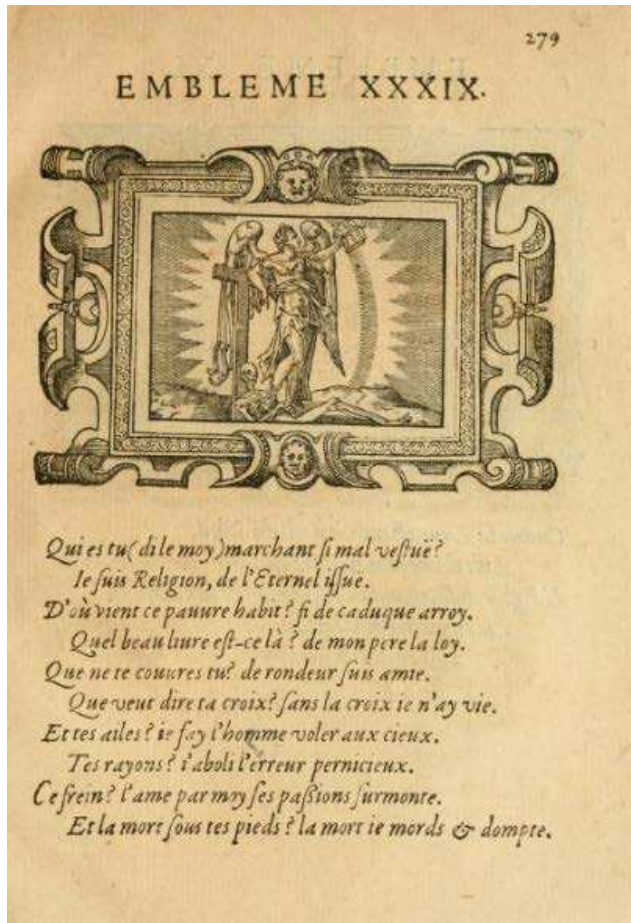 279
EMBLEME XXXIX.
Qui es tu (di le moy) marchant si mal vestuë?
Ie suis Religion, de l'Eternel issue.
D'où vient ce pauure habit? fi de caduque arroy.
Quel beau liure est-ce là? de mon pere la loy.
Que ne te couures tu? de rondeur suis amie.
Que veut dire ta croix? sans la croix ie n'ay vie.
Et tes ailes? ie fay l'homme voler aux cieux.
Tes rayons? i'aboli l'erreur pernicieux.
Ce frein? l'ame par moy ses passions surmonte.
Et la mort sous tes pieds? la mort ie mords & dompte.